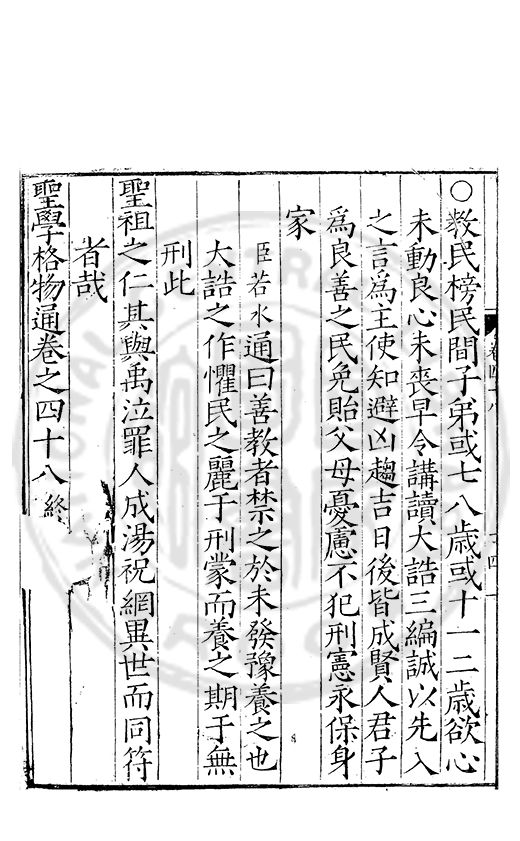 ○教民榜民間子弟或七八歲或十一二歲欲心
未動良心未喪早令講讀大誥三編誠以先入
之言爲主使知避凶趨吉日後皆成賢人君子
爲良善之民免貽父母憂慮不犯刑憲永保身
家
臣若水通曰善教者禁之於未發豫養之也
大誥之作懼民之麗于刑蒙而養之期于無
刑此
聖祖之仁其與禹泣罪人成湯祝網異世而同符
者哉
聖學格物通卷之四十八終